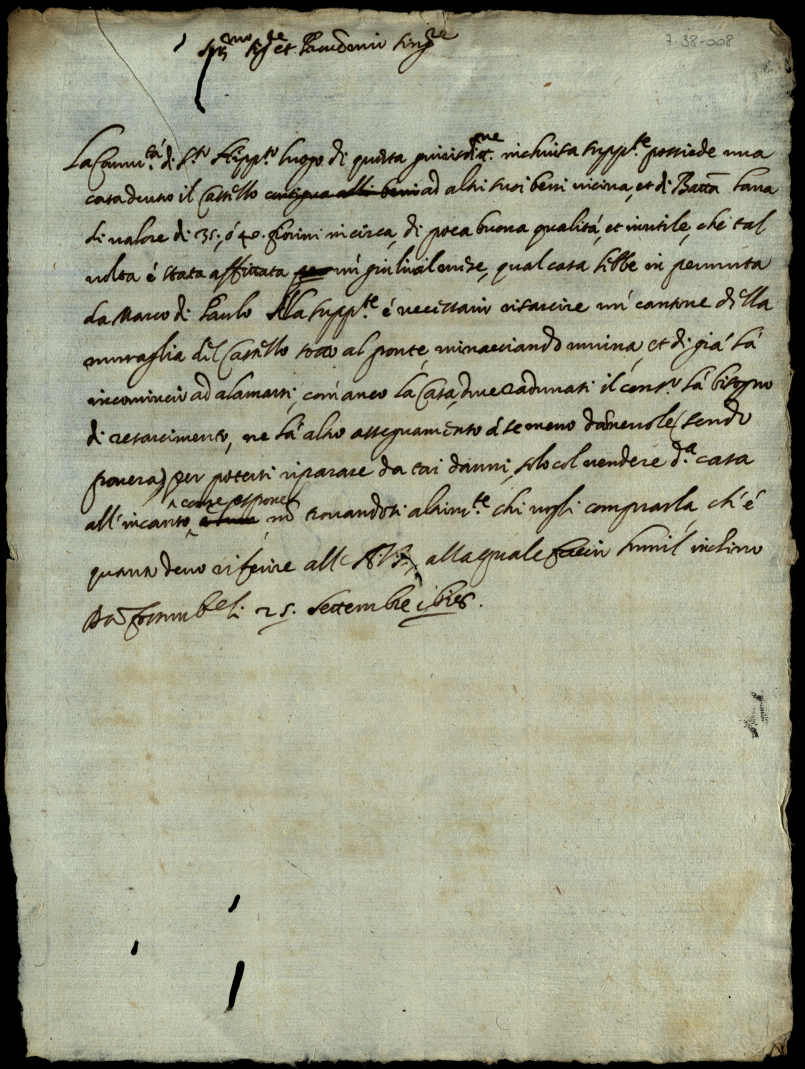 7-38-008
Ser.mo Sig.re et Padrone mio Sing.re
La Comm.tà di S.to Hippo.to luogo di questa giurisdit.ne inchiusa supp.te possiede una
casa dentro il Castello contigua alli beni ad altri suoi beni vicina, et di Batta
di valore di 35. ó 40. fiorini in circa, di poca buona qualità, et inutile, che tal
volta é stata affittata per un giulio il mese, qual casa hebbe in permuta
da Marco di Paulo. Alla supp.te é necessario risarcire un cantone della
muraglia del Castello sotto al ponte, minacciando ruina, et di già hà
incominciato, com'anco la Casa, dove radunasi il cons.o hà bisogno
di resarcimento, ne hà altro assegnamento á se meno dannevole (sendo
povera) per potersi riparare da tai danni, solo col vendere d.a casa
all'incanto, come espone, nō trovandosi altrim.te chi vogli comprarla, ch'é
quanto devo riferire all' A. V. alla quale faccio humil inchino
Da 25. Settembre